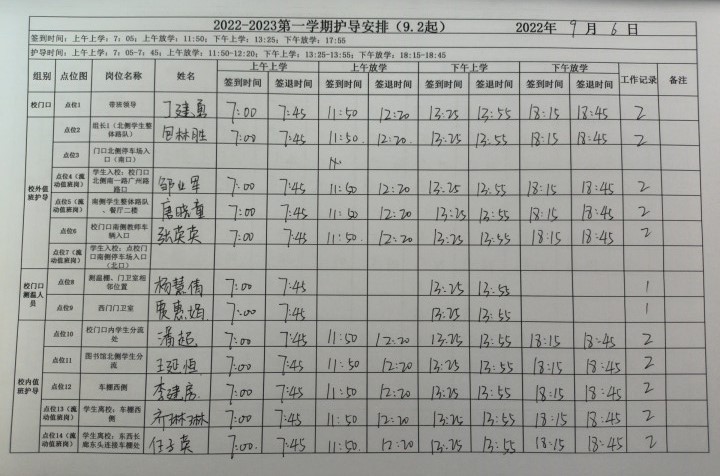 2022-2023第一学期护导安排（9.2起） 2022年 9 月 6 日
签到时间：上午上学：7：05；上午放学：11:50；下午上学：13:25；下午放学：17:55
护导时间：上午上学：7：05-7：45；上午放学:11:50-12:20；下午上学：13:25-13:55；下午放学：18:15-18:45
组别 点位图 岗位名称 姓名 上午上学 上午放学 下午上学 下午放学 工作记录 备注
签到时间 签退时间 签到时间 签退时间 签到时间 签退时间 签到时间 签退时间
校门口 点位1 带班领导 丁建勇 7:00 7:45 11:50 12:20 13:25 13:55 18:15 18:45 2
校外值班护导
点位2 组长1（北侧学生整体路队） 包林胜 7:00 7:45 11:50 12:20 13:25 13:55 18:15 18:45 2
点位3 门口北侧停车场入口（南口）
点位4（流动值班岗） 学生入校：校门口北侧南一路广州路路口 邹业军 7:00 7:45 11:50 12:20 13:25 13:55 18:15 18:45 2
点位5（流动值班岗） 南侧学生整体路队、餐厅二楼 唐晓童 7:00 7:45 11:50 12:20 13:25 13:55 18:15 18:45 2
点位6 校门口南侧教师车辆入口 张英英 7:00 7:45 11:50 12:20 13:25 13:55 18:15 18:45 2
点位7（流动值班岗） 学生入校：点校门口南侧停车场入口（北口）
校门口测温人员
点位8 测温棚、门卫室相邻位置 杨慧倩 7:00 7:45 13:25 13:55 1
点位9 西门门卫室 贾惠娟 7:00 7:45 13:25 13:55 1
校内值班护导
点位10 校门口内学生分流处 潘超 7:00 7:45 11:50 12:20 13:25 13:55 18:15 18:45 2
点位11 图书馆北侧学生分流 王延恒 7:00 7:45 11:50 12:20 13:25 13:55 18:15 18:45 2
点位12 车棚西侧 李建房 7:00 7:45 11:50 12:20 13:25 13:55 18:15 18:45 2
点位13（流动值班岗） 学生离校：车棚西侧 乔琳琳 7:00 7:45 11:50 12:20 13:25 13:55 18:15 18:45 2
点位14（流动值班岗） 学生离校：东西长廊东头连接车棚处 任子英 7:00 7:45 11:50 12:20 13:25 13:55 18:15 18:45 2